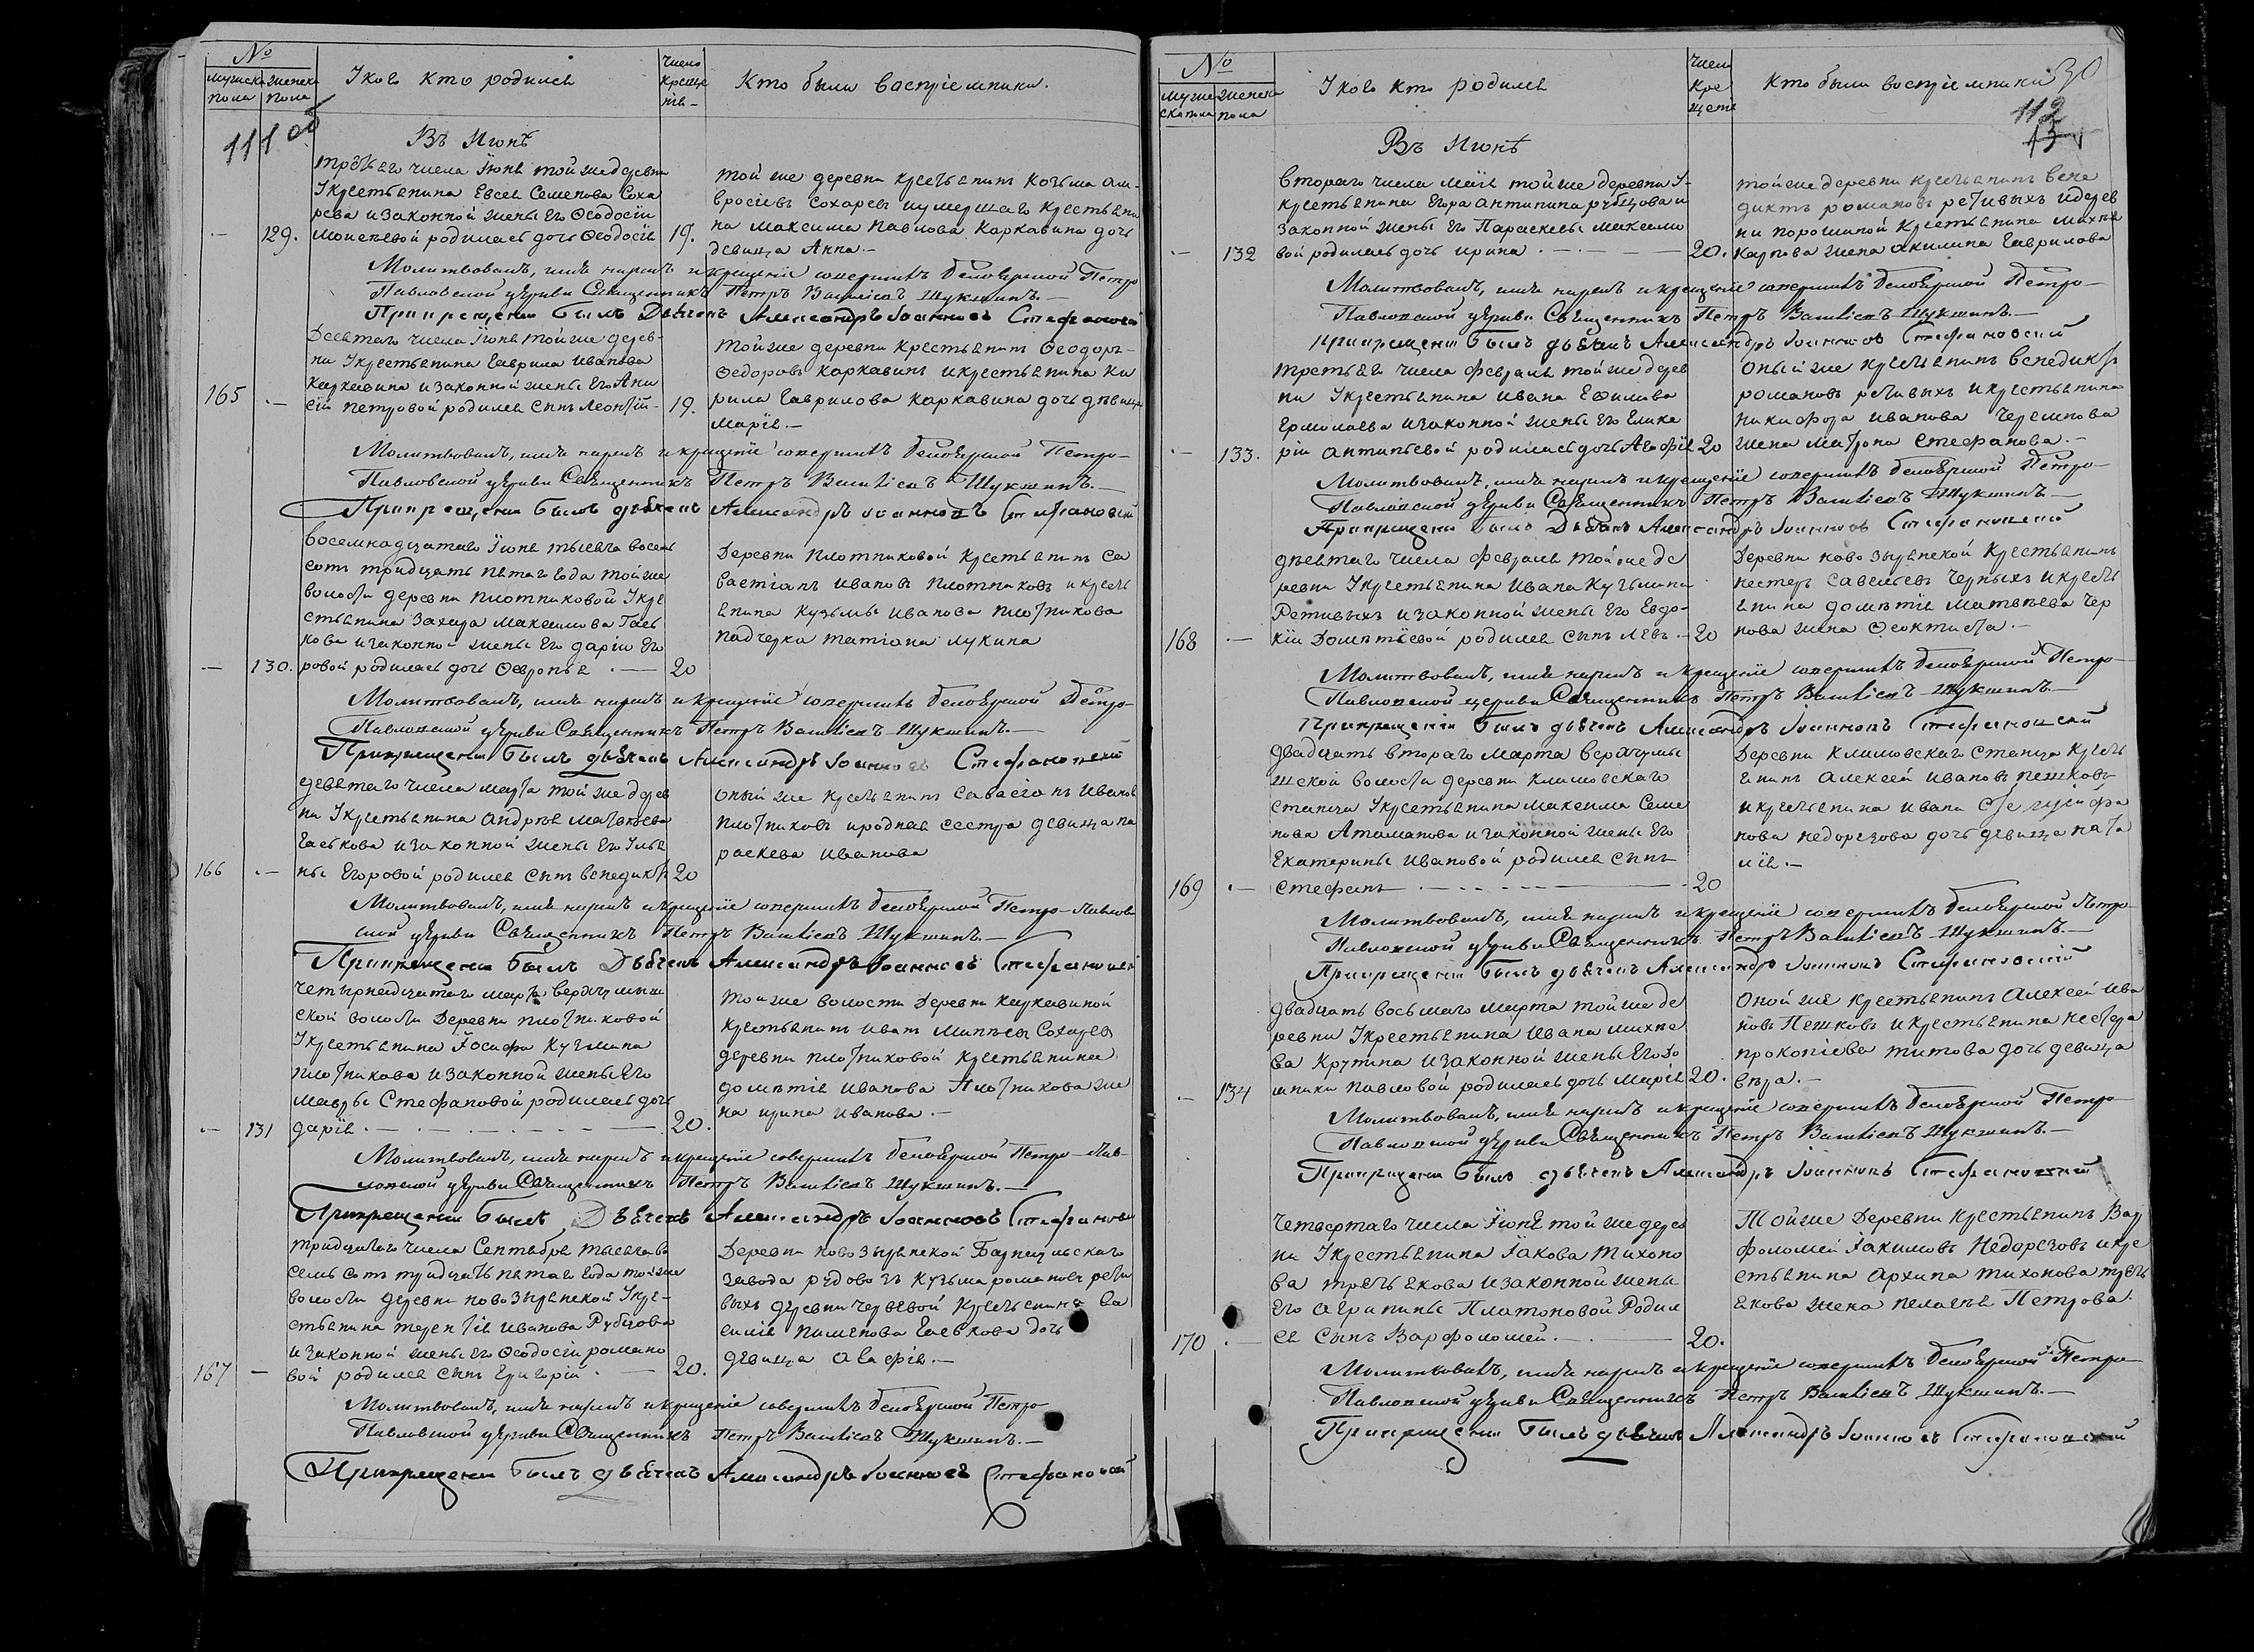 №
мужска пола
женска пола
У кого кто родился
число креще нія
Кто были воспріемники.
111 об
Въ Июнѣ
третьяго числа Іюня той же деревни
У крестьянина Евсея Семенова Соха
рева и законной жены его Ѳеодосіи
129. Моисѣевой родилась дочь Ѳеодосія 19.
той же деревни крестьянинъ Козьма Ам-
вросіевъ Сохаревъ и умершаго крестьяни
на Максима Павлова Каркавина дочь
девица Анна.
Молитвовалъ, имя нарекъ и крещеніе совершилъ Белоярской Петро
Павловской церкви Священникъ Петръ Васильевъ Шукшинъ.
При крещеніи былъ Дьячекъ Александръ Іоанновъ Стефановскій
Десятаго числа Іюня той же дерев-
ни У крестьянина Гаврила Иванова
Каркавина и законной жены его Ани
165 сіи Петровой родился сынъ Леонтій 19.
той же деревни крестьянинъ Ѳеодоръ
Ѳедоровъ Каркавинъ и крестьянина Ки
рила Гаврилова Каркавина дочь дѣвица
Марія.
Молитвовалъ, имя нарекъ и крещеніе совершилъ Белоярской Петро-
Павловской церкви Священникъ Петръ Васильевъ Шукшинъ.
При крещеніи былъ дьячекъ Александръ Іоанновъ Стефановскій
восемнадцатаго Іюня тысяча восемь
сотъ тридцать пятаго года той же
волости деревни Плотниковой У кре
стьянина Захара Максимова Гась
кова и законной жены его Даріи Его
130. ровой родилась дочь Февронья 20
Деревни Плотниковой крестьянинъ Са
вастіанъ Ивановъ Плотниковъ и кресть
янина Кузьмы Иванова Плотникова
падчерка Татіана Лукина
Молитвовалъ, имя нарекъ и крещеніе совершилъ Белоярской Петро-
Павловской церкви Священникъ Петръ Васильевъ Шукшинъ.
При крещеніи былъ дьячекъ Александръ Іоанновъ Стефановскій
девятаго числа марта той же дерев
ни У крестьянина Андрея Матвѣева
Гаськова и законной жены его Улья
166 ны Егоровой родился сынъ Венедиктъ 20
оный же крестьянинъ Савастіанъ Ивановъ
Плотниковъ и родная сестра девица Па
раскева Иванова
Молитвовалъ, имя нарекъ и крещеніе совершилъ Белоярской Петро-Павлов
ской церкви Священникъ Петръ Васильевъ Шукшинъ.
При крещеніи былъ Дьячекъ Александръ Іоанновъ Стефановскій
четырнадцатаго марта верхчумыш
ской волости Деревни Плотниковой
У крестьянина Іосифа Кузмина
Плотникова и законной жены его
Мавры Стефановой родилась дочь
131 Дарія 20.
той же волости Деревни Каркавиной
крестьянинъ Иванъ Сохаревъ
деревни Плотниковой крестьянина
Домѣтія Иванова Плотникова же
на Ирина Иванова.
Молитвовалъ, имя нарекъ и крещеніе совершилъ Белоярской Петро-Пав-
ловской церкви Священникъ Петръ Васильевъ Шукшинъ.
При крещеніи былъ Дьячекъ Александръ Іоанновъ Стефановск
тридцатаго числа Сентября тысяча во
семь сотъ тридцать пятаго года той же
волости деревни Новозырянской У кре-
стьянина Терентія Иванова Рубцова
и законной жены его Ѳеодосіи Романо
167 вой родился сынъ Григорій 20.
Деревни Новозырянской Барнаульскаго
завода рядовой Кузьма Романовъ Рети
выхъ деревни Червевой крестьянина Ва
силія Пименова Гаськова дочь
девица Агафія.
Молитвовалъ, имя нарекъ и крещеніе совершилъ Белоярской Петро
Павловской церкви Священникъ Петръ Васильевъ Шукшинъ.
При крещеніи былъ дьячекъ Александръ Іоанновъ Стефановскій
№
муже ска пола
женска пола
У кого кто родился
числа кре щенія
Кто были воспріемники
112
Въ Июнѣ
втораго числа маія той же деревни У
крестьянина Егора Антипина Рубцова и
законной жены его Параскевы Максимо
132 вой родилась дочь Ирина 20.
той же деревни крестьянинъ Вене
диктъ Романовъ Ретивыхъ и дерев
ни Порошиной крестьянина Михѣя
Карпова жена Акилина Гаврилова
Молитвовалъ, имя нарекъ и крещеніе совершилъ Белоярской Петро-
Павловской церкви Священникъ Петръ Васильевъ Шукшинъ.
При крещеніи былъ дьячекъ Александръ Іоанновъ Стефановскій
третьяго числа февраля той же дерев
ни У крестьянина Ивана Ефимова
Ермолаева и законной жены его Глике
133. ріи Антипьевой родилась дочь Агафія 20
оный же крестьянинъ Венедиктъ
Романовъ Ретивыхъ и крестьянина
Никифора Иванова Черемнова
жена Матрона Стефанова.
Молитвовалъ, имя нарекъ и крещеніе совершилъ Белоярской Петро-
Павловской церкви Священникъ Петръ Васильевъ Шукшинъ.
При крещеніи былъ Дьячекъ Александръ Іоанновъ Стефановскій
девятаго числа февраля той же де
ревни У крестьянина Ивана Кузьмина
Ретивыхъ и законной жены его Евдо-
168 кіи Домѣтіевой родился сынъ Левъ 20
Деревни Новозырянской крестьянинъ
Нестеръ Савельевъ Черныхъ и кресть
янина Домѣтія Матвѣева Чер
нова жена Ѳеоктиста.
Молитвовалъ, имя нарекъ и крещеніе совершилъ Белоярской Петро-
Павловской церкви Священникъ Петръ Васильевъ Шукшинъ.
При крещеніи былъ дьячекъ Александръ Іоанновъ Стефановскій
Двадцать втораго марта верхчумы
шской волости деревни Климовскаго
станца У крестьянина Максима Семе
нова Атаманова и законной жены его
Екатерины Ивановой родился сынъ
169 Стефанъ 20
Деревни Климовскаго станца кресть
янинъ Алексей Ивановъ Пешковъ
и крестьянина Ивана
нова Недорезова дочь девица Ната
лія.
Молитвовалъ, имя нарекъ и крещеніе совершилъ Белоярской Петро
Павловской церкви Священникъ Петръ Васильевъ Шукшинъ.
При крещеніи былъ дьячекъ Александръ Іоанновъ Стефановскій
двадцать восьмаго марта той же де
ревни У крестьянина Ивана Михее
ва Крутина и законной жены его До
134 мники Павловой родилась дочь Марія 20.
Оной же крестьянинъ Алексей Ива
новъ Пешковъ и крестьянина Нестера
Прокопіева Титова дочь девица
Вѣра.
Молитвовалъ, имя нарекъ и крещеніе совершилъ Белоярской Петро
Павловской церкви Священникъ Петръ Васильевъ Шукшинъ.
При крещеніи былъ дьячекъ Александръ Іоанновъ Стефановскій
Четвертаго числа Іюня той же дерев
ни У крестьянина Іакова Тихоно
ва Третьякова и законной жены
его Агрипины Платоновой Родил
170 ся сынъ Варфоломей. 20.
Той же Деревни крестьянинъ Вар
фоломей Іакимовъ Недорезовъ и кре
стьянина Архипа Тихонова Треть
якова жена Пелагѣя Петрова.
Молитвовалъ, имя нарекъ и крещеніе совершилъ Белоярской Петро
Павловской церкви Священникъ Петръ Васильевъ Шукшинъ.
При крещеніи былъ дьячекъ Александръ Іоанновъ Стефановскій